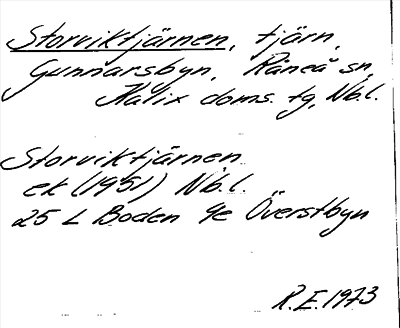 Storviktjärnen, tjärn,
Gunnarsbyn, Råneå sn,
Kalix doms. tg, Nb.l.
Storviktjärnen
ek (1951) Nb.l.
25 L Boden 4e Överstbyn
R.E. 1973